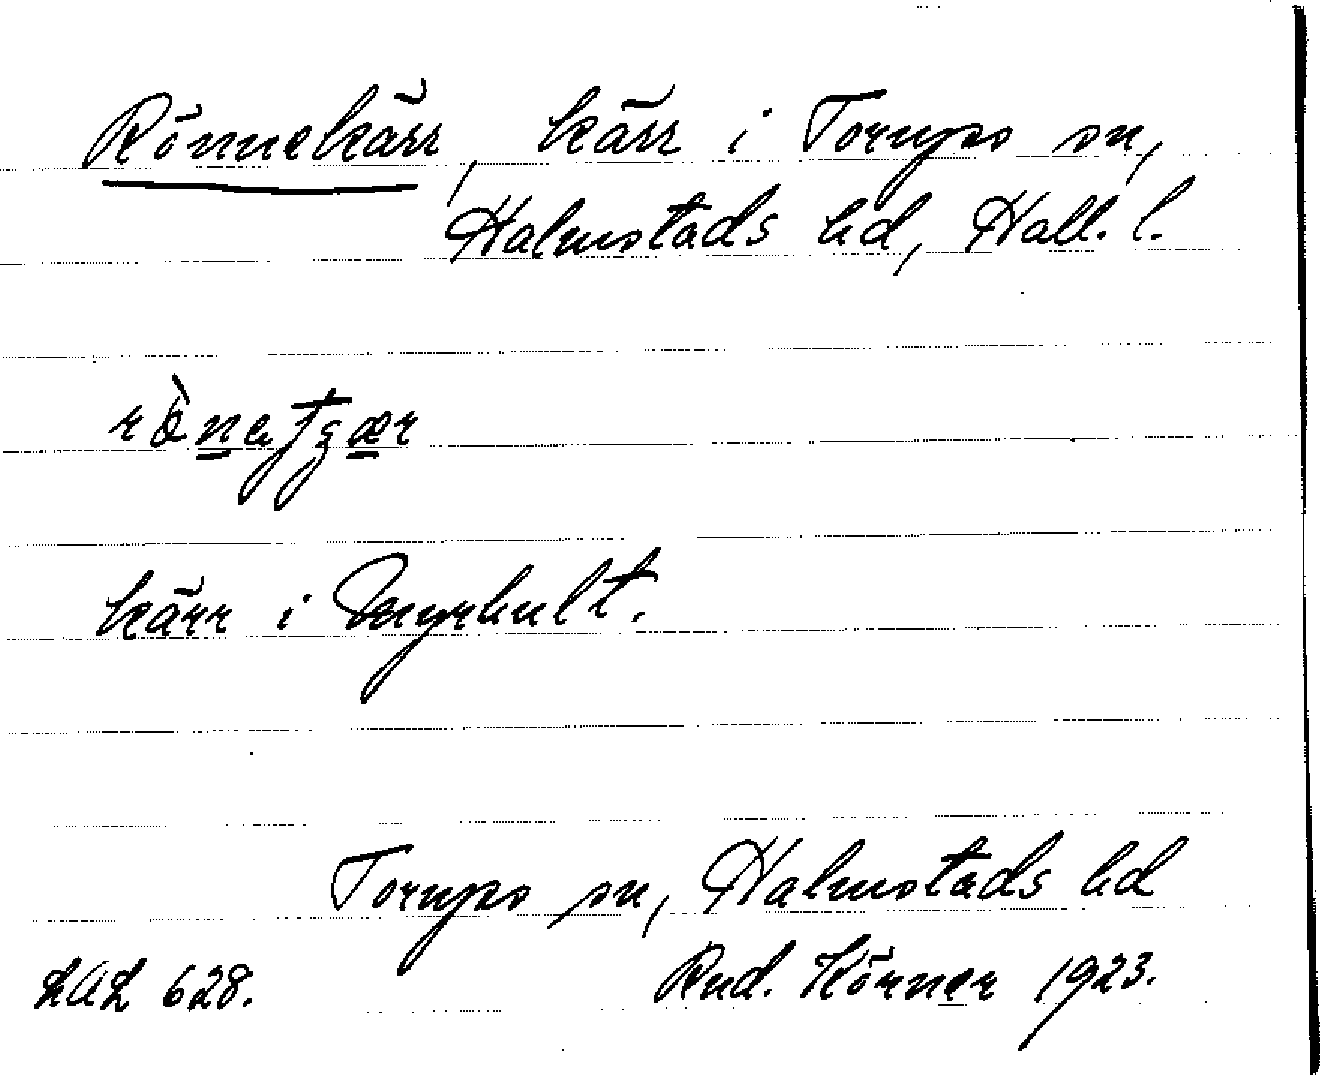 Rönnekärr, kärr i Torups sn,
Halmstads hd, Hall. l.
kärr i Myrhult.
Torups sn, Halmstads hd
LAL 628. Rud. Körner 1923.